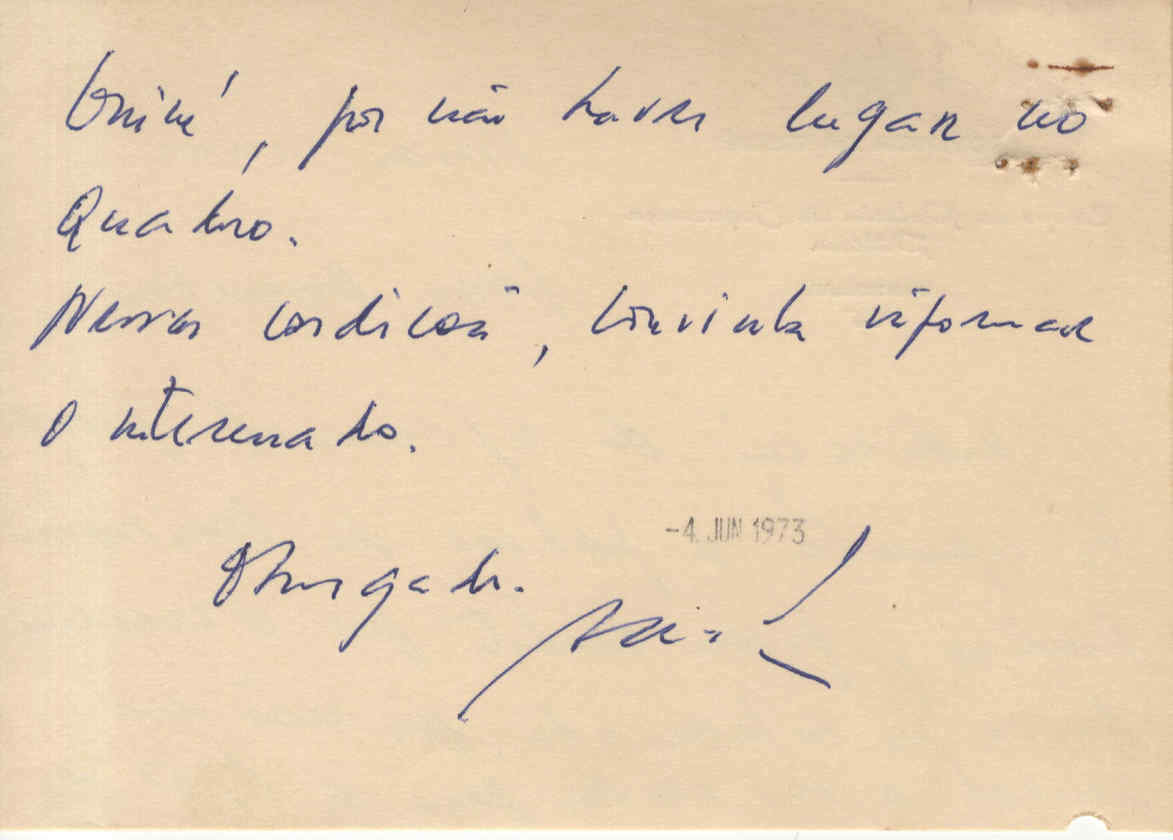 por não haver lugar no
Quadro.
Nessas condições, convinha informar
o interessado.
-4. JUN 1973
Obrigado.